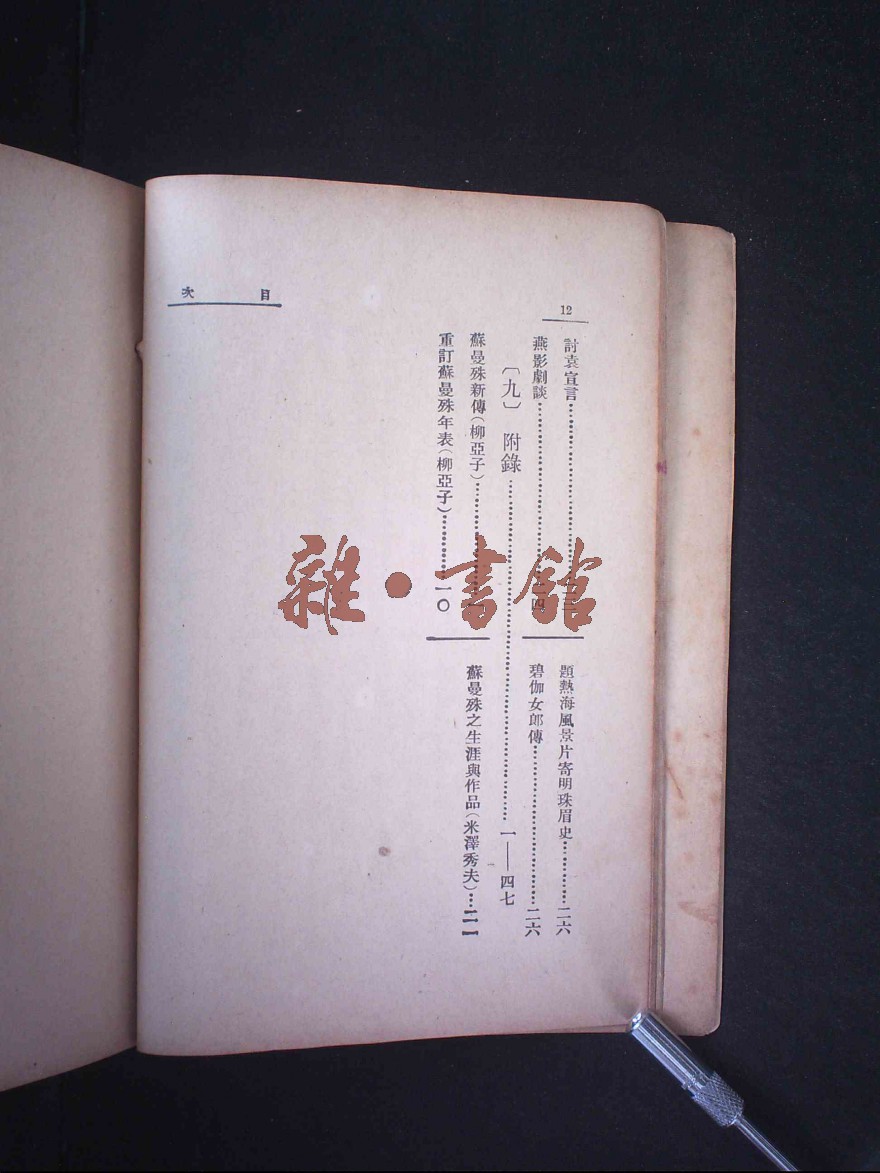 目次
12
討袁宣言
燕影劇談
題熱海風景片寄明珠眉史⋯⋯二六
碧伽女郎傳⋯⋯二六
〔九〕 附錄⋯⋯一——四七
蘇曼殊新傳(柳亞子)
重訂蘇曼殊年表(柳亞子)⋯⋯一〇
蘇曼殊之生涯與作品(米澤秀夫)⋯⋯二一
雜·書館